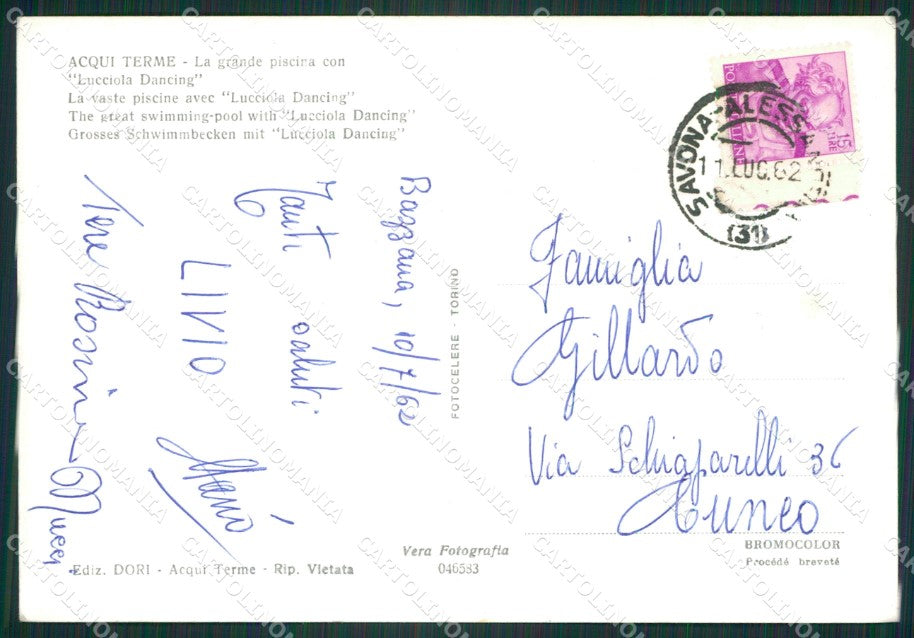 ACQUI TERME - La grande piscina con
"Lucciola Dancing"
La vaste piscine avec "Lucciola Dancing"
The great swimming-pool with "Lucciola Dancing"
Grosses Schwimmbecken mit "Lucciola Dancing"
Bazzana, 10/7/62
Tanti saluti
LIVIO
Mario
Tere Rosina Mucci
FOTOCELERE - TORINO
POSTE ITALIANE
15
LIRE
SAVONA-ALESSANDRIA
11.LUG.62
(31)
Famiglia
Gillardo
Via Schiaparelli 36
Cuneo
BROMOCOLOR
Procédé breveté
Vera Fotografia
046583
Ediz. DORI - Acqui Terme - Rip. Vietata
CARTOLINOMANIA